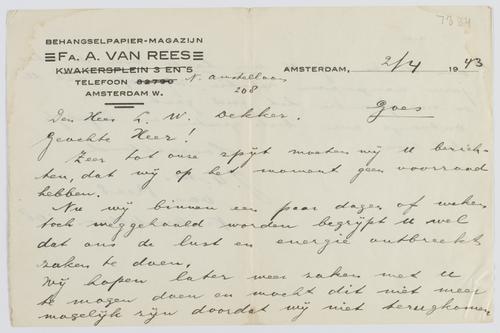 7384
BEHANGSELPAPIER-MAGAZIJN
FA. A. VAN REES
KWAKERSPLEIN 3 EN 5
TELEFOON 82790 N. Amstellaan
AMSTERDAM W. 208
AMSTERDAM, 2/4 1943
Den Heer L. W. Dekker.
Goes
Geachte Heer!
Zeer tot onze spijt moeten wij U berich-
ten, dat wij op het moment geen voorraad
hebben.
Nu wij binnen een paar dagen of weken
toch weggehaald worden begrijpt U wel
dat ons de lust en energie ontbreekt
zaken te doen.
Wij hopen later weer zaken met U
te mogen doen en mocht dit niet meer
mogelijk zijn doordat wij niet terugkomen